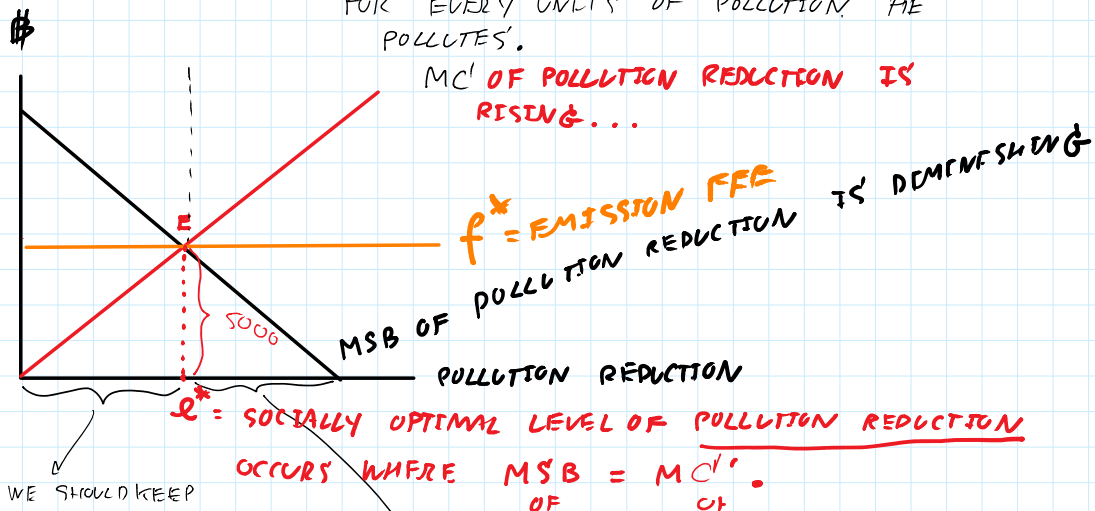 $
FOR EVERY UNITS OF POLLUTION HE
POLLUTES.
MC OF POLLUTION REDUCTION IS
RISING...
f* = EMISSION FEE
E
5000
MSB OF POLLUTION REDUCTION IS DIMINESHING
POLLUTION REDUCTION
e* = SOCIALLY OPTIMAL LEVEL OF POLLUTION REDUCTION
OCCURS WHERE MSB = MC.
OF OF
WE SHOULD KEEP